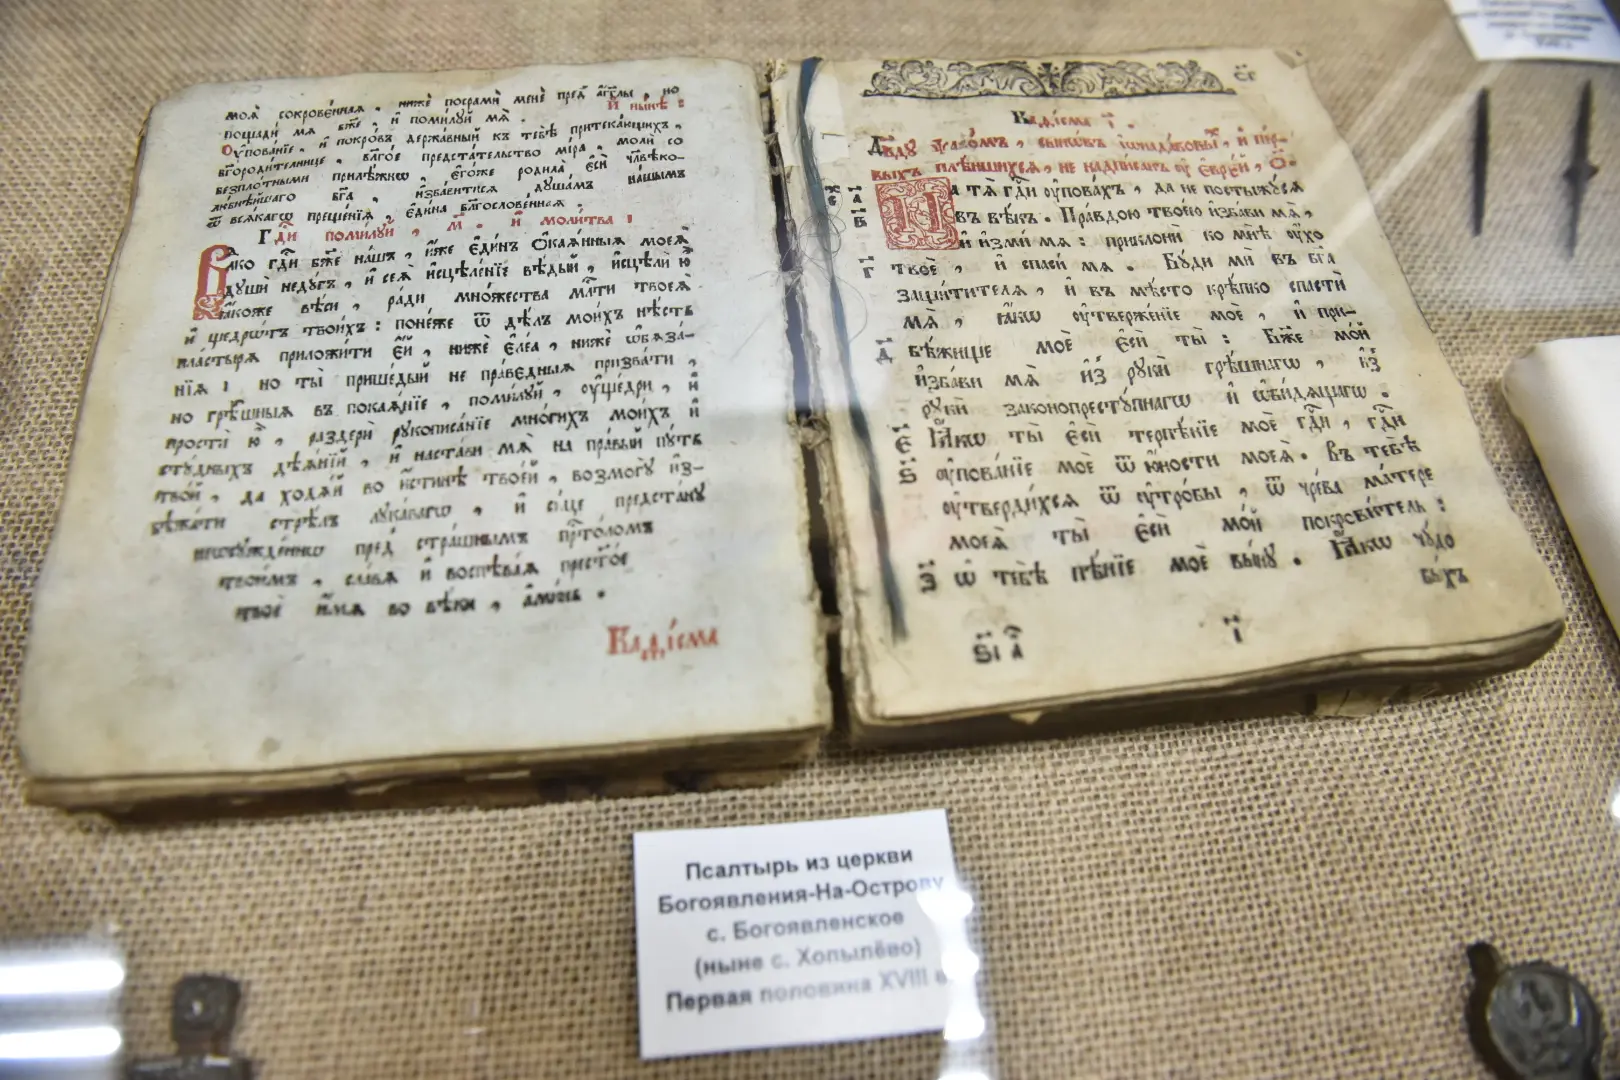 моѧ̀ сокрове́ннаѧ , ниже́ посрами́ менѐ пред̾ а҆́гг҃лы , но
пощади́ мѧ бж҃е , и҆ поми́лꙋй мѧ̀ . И҆ ны́нѣ :
Оу҆пова́нїе , и҆ покро́въ держа́вный къ тебѣ̀ притека́ющихъ ,
бг҃оро́дительнице , бл҃го́е предста́тельство ми́ра , молѝ со
безпло́тными прилѣ́жнѡ , є҆го́же родила̀ є҆сѝ чл҃вѣко-
люби́вѣйшаго бг҃а , и҆зба́витисѧ дꙋша́мъ на́шымъ
ѿ всѧ́кагѡ преще́нїѧ , є҆ди́на бл҃гослове́ннаѧ .
Гд҃и поми́лꙋй , м҃ . и҆ моли́тва :
Вл҃ко гд҃и бж҃е на́шъ , и҆́же є҆ди́нъ ѻ҆каѧ́нныѧ моеѧ̀
дꙋшѝ недꙋ́гъ , и҆ сеѧ̀ и҆сцѣле́нїе вѣ́дый , и҆сцѣлѝ ю҆̀
ꙗ҆́коже вѣ́си , ра́ди мно́жества млⷭ҇ти твоеѧ̀
и҆ щедро́тъ твои́хъ : поне́же ѿ дѣ́лъ мои́хъ нѣ́сть
пла́стырѧ приложи́ти є҆́й , ниже́ є҆ле́а , ниже́ ѡ҆бѧза́-
нїѧ : но ты̀ прише́дый не пра́ведныѧ призва́ти ,
но грѣ́шныѧ въ покаѧ́нїе , поми́лꙋй , оу҆ще́дри , и҆
простѝ ю҆̀ , раздерѝ рꙋкописа́нїе мно́гихъ мои́хъ и҆
стꙋ́дныхъ дѣѧ́нїй , и҆ наста́ви мѧ̀ на пра́вый пꙋ́ть
тво́й , да ходѧ́й во и҆́стинѣ твое́й , возмогꙋ̀ и҆з-
бѣжа́ти стрѣ́лъ лꙋка́вагѡ , и҆ си́це предста́нꙋ
неѡсꙋжде́ннѡ пред̾ стра́шнымъ прⷭ҇то́ломъ
твои́мъ , сла́вѧ и҆ воспѣва́ѧ прест҃о́е
твоѐ и҆́мѧ во вѣ́ки , а҆ми́нь .
Каѳі́сма
ѯ҃г
Каѳі́сма і҃ .
Дв҃дꙋ ѱало́мъ , сынѡ́въ і҆ѡнада́вовыхъ , и҆ пе́р-
выхъ плѣ́ншихсѧ , не надпи́санъ оу҆ є҆вре́й , о҃ .
а҃ На тѧ̀ гд҃и оу҆пова́хъ , да не постыжꙋ́сѧ
в҃ въ вѣ́къ . Пра́вдою твое́ю и҆зба́ви мѧ̀ ,
и҆ и҆зми́ мѧ : приклонѝ ко мнѣ̀ оу҆́хо
г҃ твоѐ , и҆ спаси́ мѧ . Бꙋ́ди ми въ бг҃а
защи́тителѧ , и҆ въ мѣ́сто крѣ́пко спастѝ
мѧ̀ , ꙗ҆́кѡ оу҆твержде́нїе моѐ , и҆ при-
д҃ бѣ́жище моѐ є҆сѝ ты̀ : Бж҃е мо́й
и҆зба́ви мѧ̀ и҆з̾ рꙋкѝ грѣ́шнагѡ , и҆з̾
рꙋкѝ законопрестꙋ́пнагѡ и҆ ѡ҆би́дѧщагѡ .
є҃ Ꙗ҆́кѡ ты̀ є҆сѝ терпѣ́нїе моѐ гд҃и , гд҃и
ѕ҃ оу҆пова́нїе моѐ ѿ ю҆́ности моеѧ̀ . Въ тебѣ̀
оу҆тверди́хсѧ ѿ оу҆тро́бы , ѿ чре́ва ма́тере
моеѧ̀ ты̀ є҆сѝ мо́й покрови́тель :
з҃ ѡ҆ тебѣ̀ пѣ́нїе моѐ вы́нꙋ . Ꙗ҆́кѡ чꙋ́до
бы́хъ
ѕ҃і а҃ і҃
Псалтырь из церкви
Богоявления-На-Острову
с. Богоявленское
(ныне с. Хопылёво)
Первая половина XVIII в.